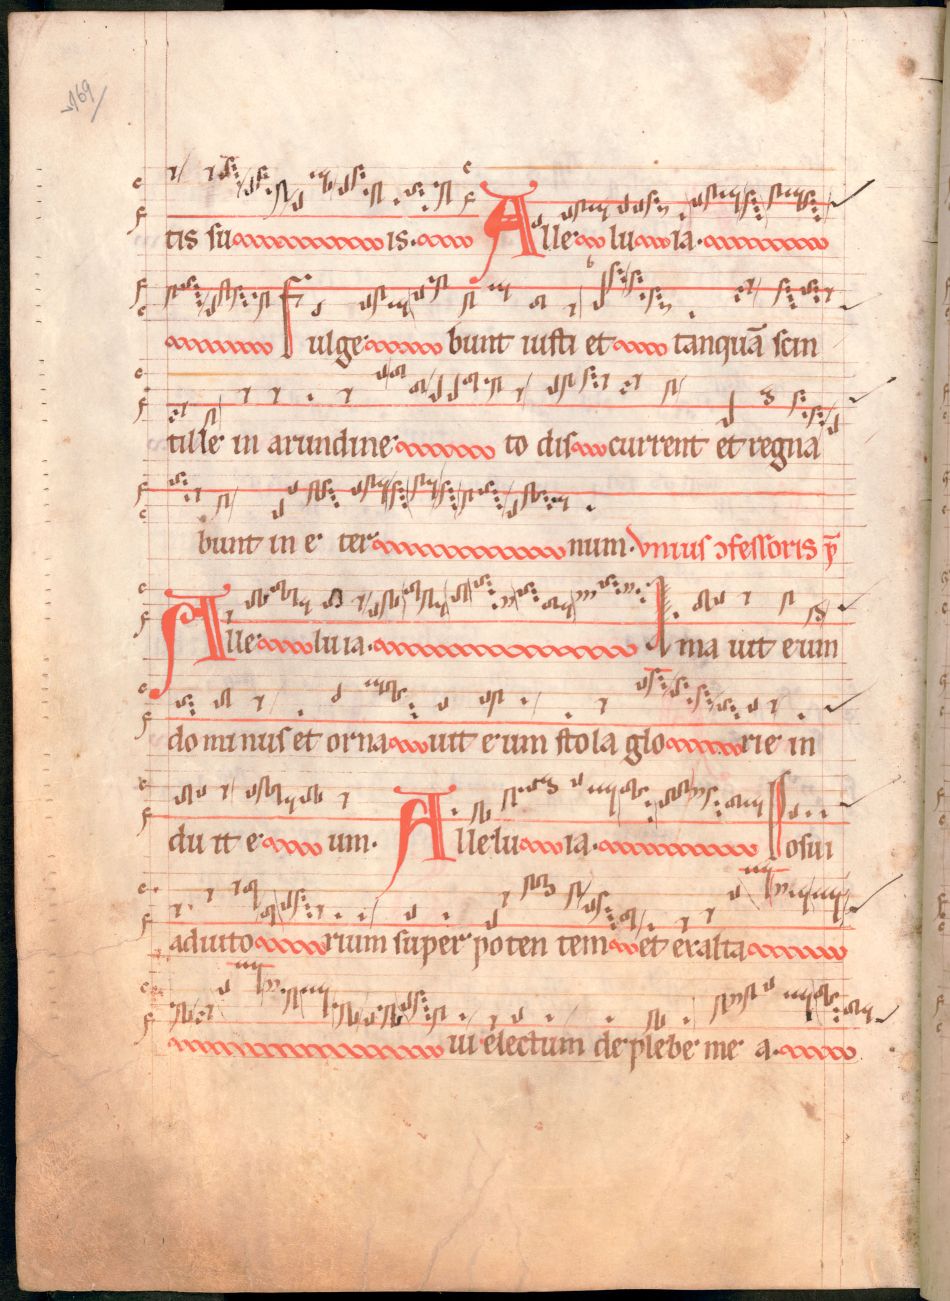 169
tis su is. Alle lu ia.
Fulge bunt iusti et tanquā scin
tille in arundine to dis current et regna
bunt in e ter num. vnius ɔfessoris ꝑ
Alle lu ia. Ama uit eum
dominus et orna uit eum stola glo rie in
du it e um. Alle lu ia. Posui
adiuto rium super poten tem et exalta
ui electum de plebe me a.